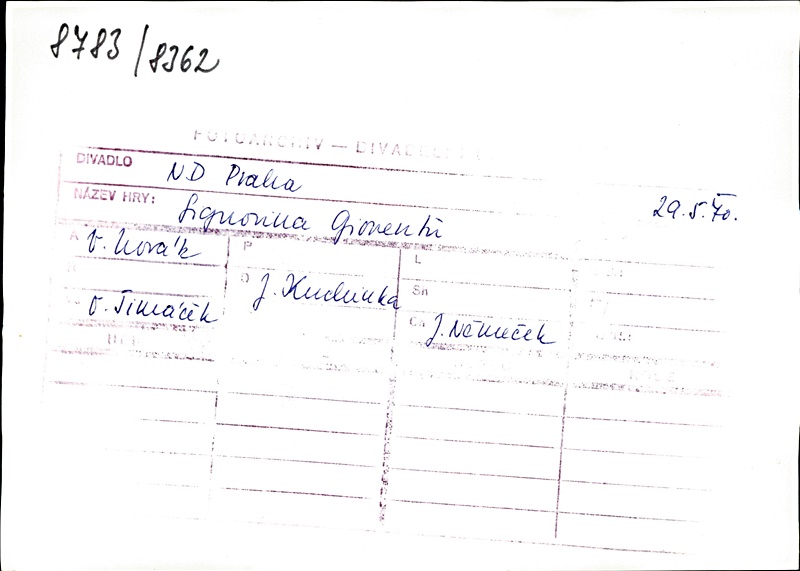 8783/8362
FOTOARCHIV — DIVADELNÍ
DIVADLO ND Praha
NÁZEV HRY: Signorina Gioventù 29.5.70.
A V. Novák P L
O J. Kudrnka Sn
V. Timáček Ch J. Němeček